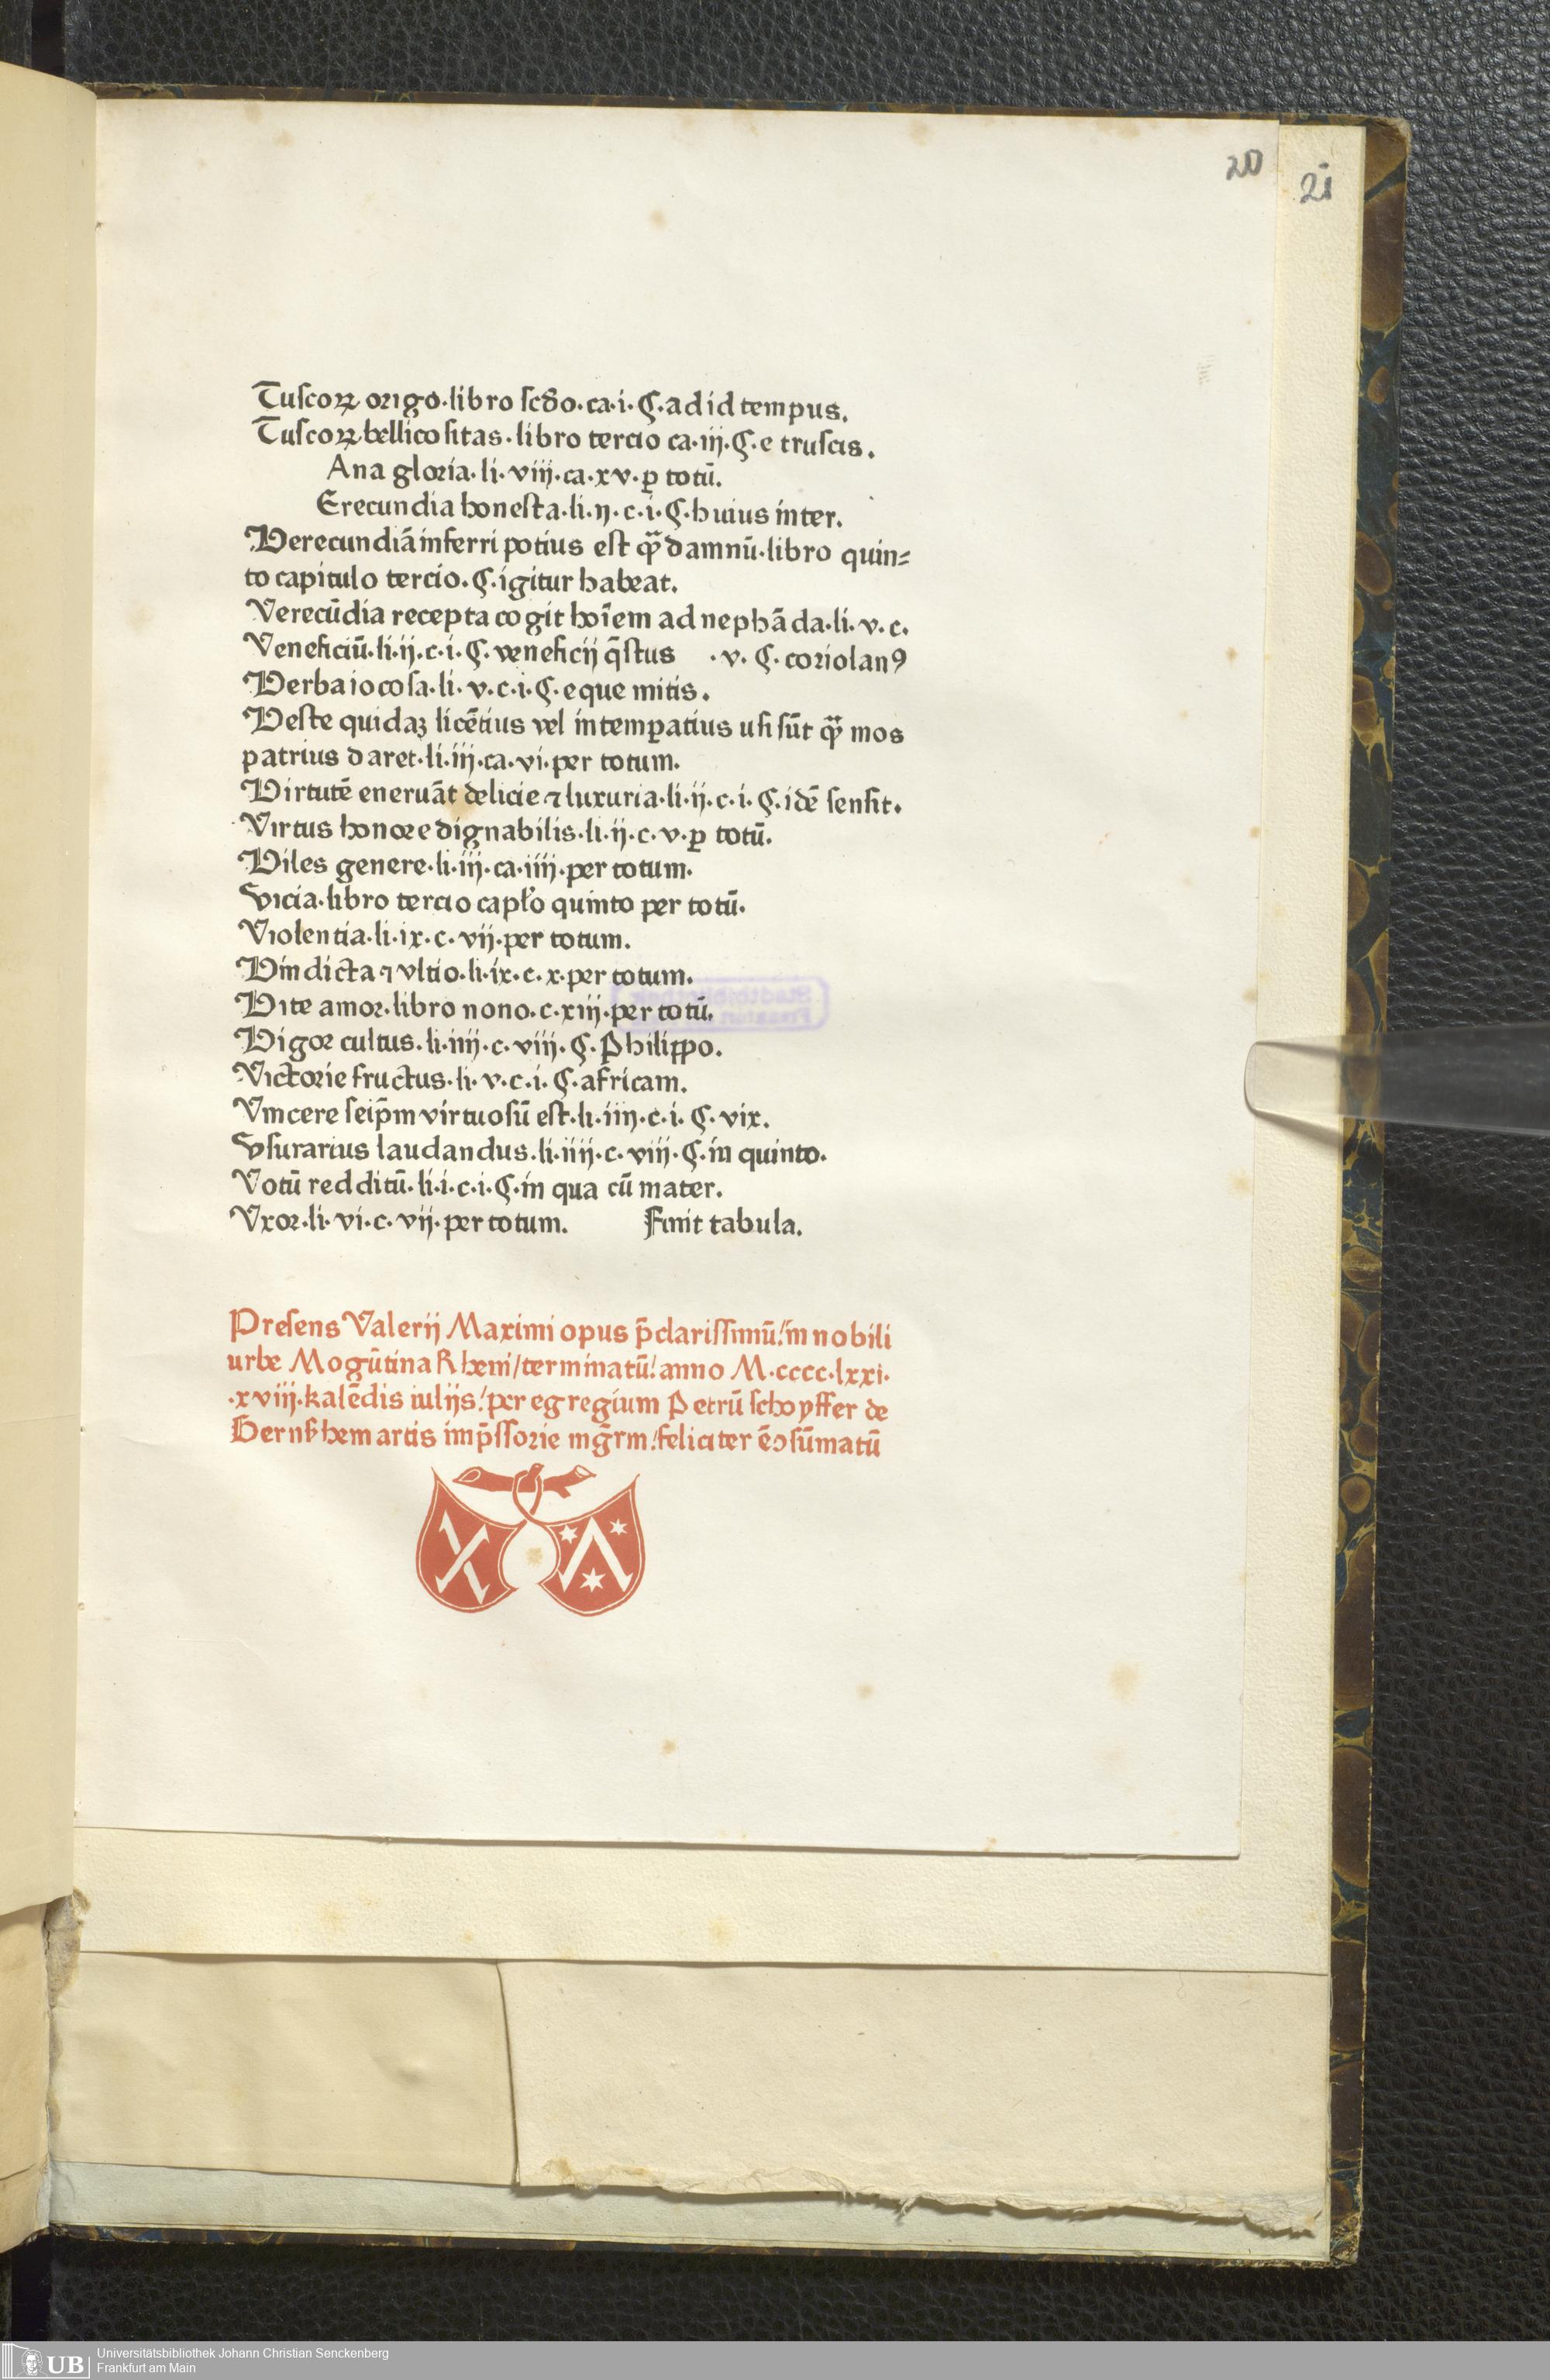 20
21
Tuſcoꝝ origo·libro ſcðo·ca·i·ꞔ·ad id tempus.
Tuſcoꝝ bellicoſitas·libro tercio ca·iij·ꞔ·e truſcis.
Ana gloria·li·viij·ca·xv·ꝑ totū.
Erecundia honeſta·li·ij·c·i·ꞔ·huius inter.
Verecundiā inferri potius eſt qᷓ damnū·libro quin⸗
to capitulo tercio.ꞔ·igitur habeat.
Verecūdia recepta cogit hoīem ad nephāda·li·v·c.
Veneficiū·li·ij·c·i·ꞔ·veneficij q̄ſtus ·v·ꞔ·coriolanꝰ
Verba iocoſa·li·v·c·i·ꞔ·eque mitis.
Veſte quidaꝫ licētius vel intemꝑatius uſi ſūt qᷓ mos
patrius daret·li·iij·ca·vi·per totum.
Virtutē eneruāt delicie ⁊ luxuria·li·ij·c·i·ꞔ·idē ſenſit.
Virtus honore dignabilis·li·ij·c·v·ꝑ totū.
Viles genere·li·iij·ca·iiij·per totum.
Vicia·libro tercio capl̄o quinto per totū.
Violentia·li·ix·c·vij·per totum.
Vindicta ⁊ vltio·li·ix·c·x·per totum.
Vite amor·libro nono·c·xiij·per totū.
Vigor cultus·li·iiij·c·viij·ꞔ·Philippo.
Victorie fructus·li·v·c·i·ꞔ·africam.
Vincere ſeip̄m virtuoſū eſt·li·iiij·c·i·ꞔ·vix.
Vſurarius laudandus·li·iiij·c·viij·ꞔ·in quinto.
Votū redditū·li·i·c·i·ꞔ·in qua cū mater.
Vxor·li·vi·c·vij·per totum. Finit tabula.
Preſens Valerij Maximi opus p̄clariſſimū/in nobili
urbe Mogūtina Rheni/terminatū/anno M·cccc·lxxi·
·xviij·kalēdis iulijs/per egregium Petrū ſchoyffer de
Gernſzhem artis imp̄ſſorie mgr̄m/feliciter ē ↄſūmatū
UB
Universitätsbibliothek Johann Christian Senckenberg
Frankfurt am Main